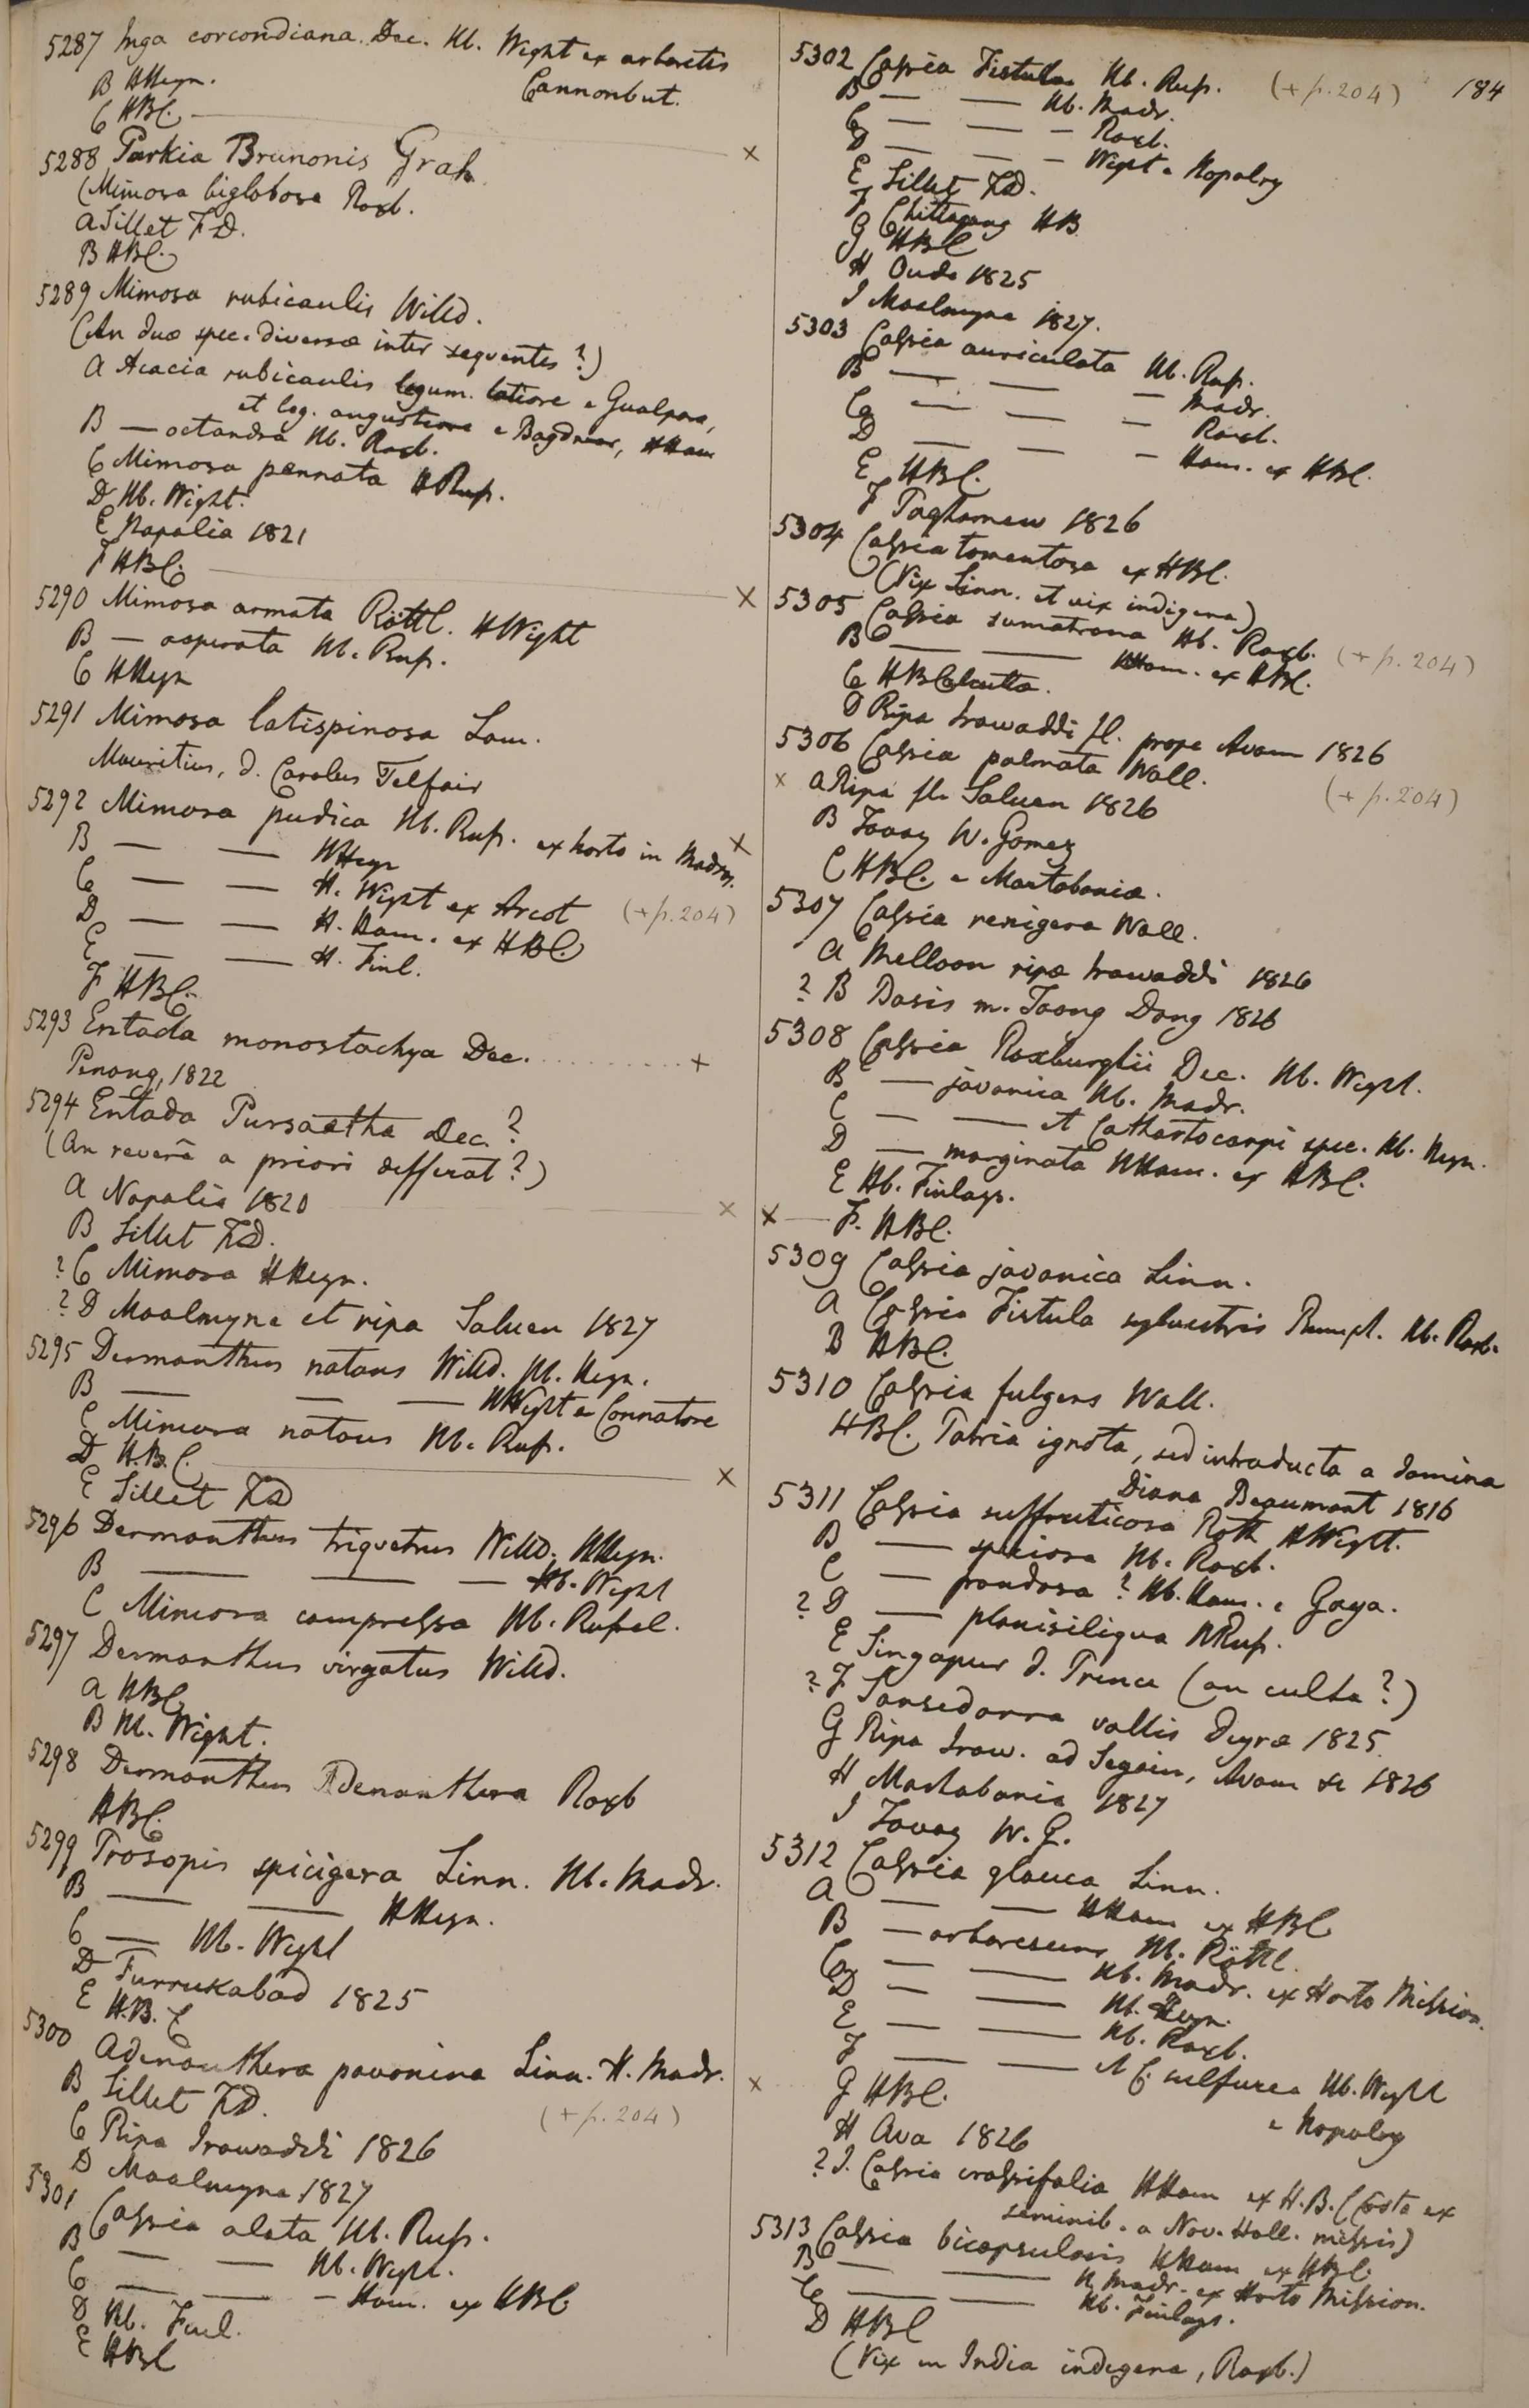 5287 Inga corcondiana Dec. Hb. Wight ex arboretis
Cannonbut.
B HHeyn.
C HBC.
5288 Parkia Brunonis Grah. ×
(Mimosa biglobosa Roxb.
a Sillet FD.
B HBC.
5289 Mimosa rubicaulis Willd.
(An duæ spec. diversæ inter sequentes ?)
a Acacia rubicaulis legum. latiore e Gualpara,
et leg. angustiore e Bagdwar, HHam
B — octandra Hb. Roxb.
C Mimosa pennata HRup.
D Hb. Wight.
E Napalia 1821
F HBC. ×
5290 Mimosa armata Röttl. HWight
B — asperata Hb. Rup.
C HHeyn
5291 Mimosa latispinosa Lam.
Mauritius, d. Carolus Telfair
5292 Mimosa pudica Hb. Rup. ex horto in Madras. ×
B — — HHeyn
C — — H. Wight ex Arcot (+p.204)
D — — H. Ham. ex HBC.
E — — H. Finl.
F HBC.
5293 Entada monostachya Dec. .......... +
Penang, 1822
5294 Entada Pursaetha Dec. ?
(An reverâ a priori differat ?)
a Napalia 1820 ×
B Sillet FD.
? C Mimosa HHeyn.
? D Moalmyne et ripa Saluen 1827
5295 Desmanthus natans Willd. Hb. Heyn.
B — — — HWight e Connatore
C Mimosa natans Hb. Rup.
D H.B.C. ×
E Sillet FD
5296 Desmanthus triquetrus Willd. HHeyn.
B — — — Hb. Wight
C Mimosa compressa Hb. Rupel.
5297 Desmanthus virgatus Willd.
a HBC
B Hb. Wight.
5298 Desmanthus Adenanthera Roxb
HBC.
5299 Prosopis spicigera Linn. Hb. Madr.
B — — HHeyn.
C — Hb. Wight
D Furrukabad 1825
E H.B.C
5300 Adenanthera pavonina Linn. H. Madr.
B Sillet FD. (+p.204)
C Ripa Irawaddi 1826
D Moalmyne 1827
5301 Cassia alata Hb. Rup.
B — — Hb. Wight.
C — — — Ham. ex HBC
D Hb. Finl.
E HBC
184
5302 Cassia Fistula Hb. Rup. (+p.204)
B — — Hb. Madr.
C — — — Roxb.
D — — — Wight e Nopalry
E Sillet FD.
F Chittagong HB
G HBC
H Oude 1825
I Moalmyne 1827.
5303 Cassia auriculata Hb. Rup.
B — — — Madr.
C — — — Roxb.
D — — — Ham. ex HBC.
E HBC.
F Paghamew 1826
5304 Cassia tomentosa ex HBC.
(Vix Linn. et vix indigena)
5305 Cassia sumatrana Hb. Roxb. (+p.204)
B — — HHam. ex HBC.
C HBCalcutta.
D Ripa Irawaddi fl. prope Avam 1826
5306 Cassia palmata Wall. (+p.204)
× a Ripa fl. Saluen 1826
B Tavoy W. Gomez
C HBC. e Martabania.
5307 Cassia renigera Wall.
a Melloon ripæ Irawaddi 1826
? B Basis m. Toong Dong 1826
5308 Cassia Roxburghii Dec. Hb. Wight.
B — javanica Hb. Madr.
C — — et Cathartocarpi spec. Hb. Heyn.
D — marginata HHam. ex HBC.
E Hb. Finlays.
× F. HBC.
5309 Cassia javanica Linn.
a Cassia Fistula sylvestris Rumph. Hb. Roxb.
B HBC
5310 Cassia fulgens Wall.
HBC. Patria ignota, sed introducta a domina
Diana Beaumont 1816
5311 Cassia suffruticosa Roth HWight.
B — speciosa Hb. Roxb.
C — frondosa ? Hb. Ham. e Gaya.
? D — planisiliqua HRup.
E Singapur d. Prince (an culta ?)
? F Sansedarra vallis Deyræ 1825
G Ripa Iraw. ad Segain, Avam &c 1826
H Martabania 1827
I Tavoy W. G.
5312 Cassia glauca Linn.
a — — HHam ex HBC
B — arborescens Hb. Röttl.
C — — Hb. Madr. ex Horto Mission.
D — — Hb. Heyn.
E — — Hb. Roxb.
F — — et C. sulfurea Hb. Wight
e Nopalry
× G HBC.
H Ava 1826
? I. Cassia crassifolia HHam ex H.B.C (orta ex
seminib. a Nov. Holl. missis)
5313 Cassia bicapsularis HHam ex HBC.
B — — H Madr. ex Horto Mission.
C — — Hb. Finlays.
D HBC
(Vix in India indigena, Roxb.)